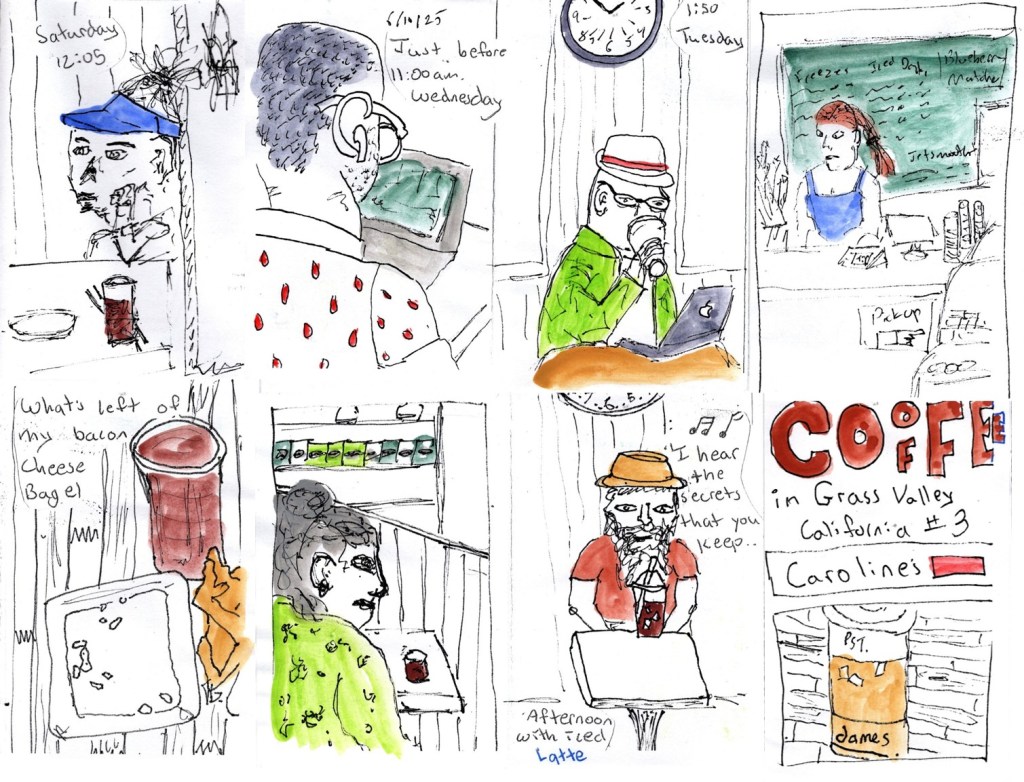 Saturday
12:05
6/10/25
Just before
11:00am.
Wednesday
1:50
Tuesday
Freezes Iced
Blueberry
Matcha
Pickup
What's left of
my bacon
Cheese
Bagel
I hear
the
secrets
that you
keep..
Afternoon
with iced
Latte
COOFFEE
in Grass Valley
California #3
Caroline's
PST.
James